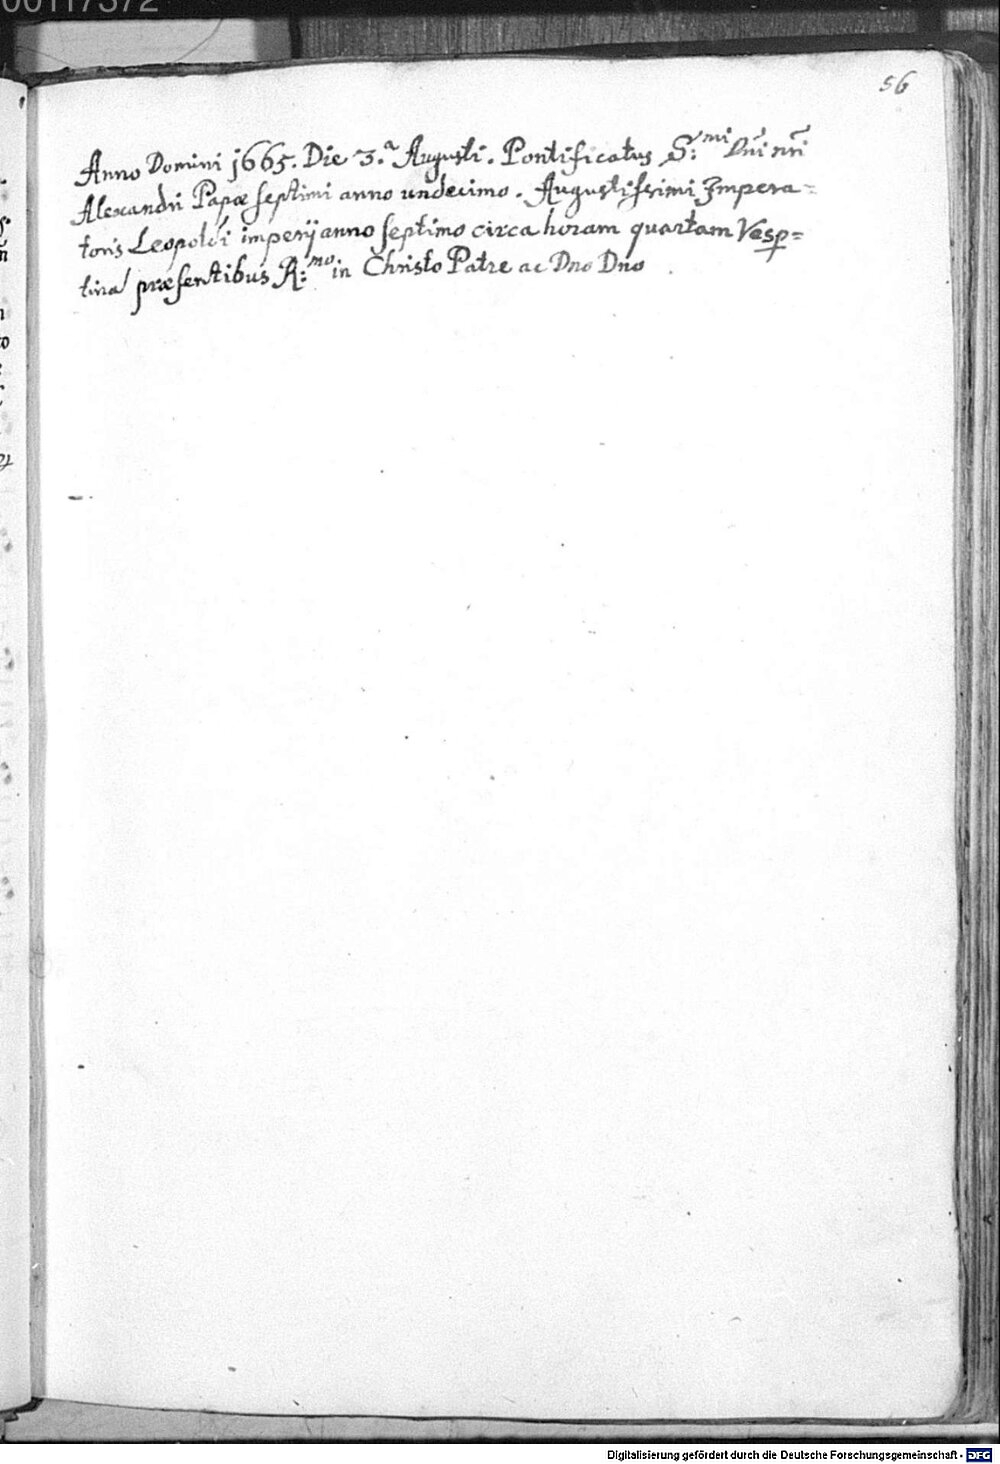 00117372
56
Anno Domini 1665. Die 3.ª Augusti. Pontificatus S:mi Dñi nri
Alexandri Papæ septimi anno undecimo. Augustissimi Impera=
toris Leopoldi imperij anno septimo circa horam quartam Vesp=
tina præsentibus R:mo in Christo Patre ac Dno Dno
Digitalisierung gefördert durch die Deutsche Forschungsgemeinschaft - DFG